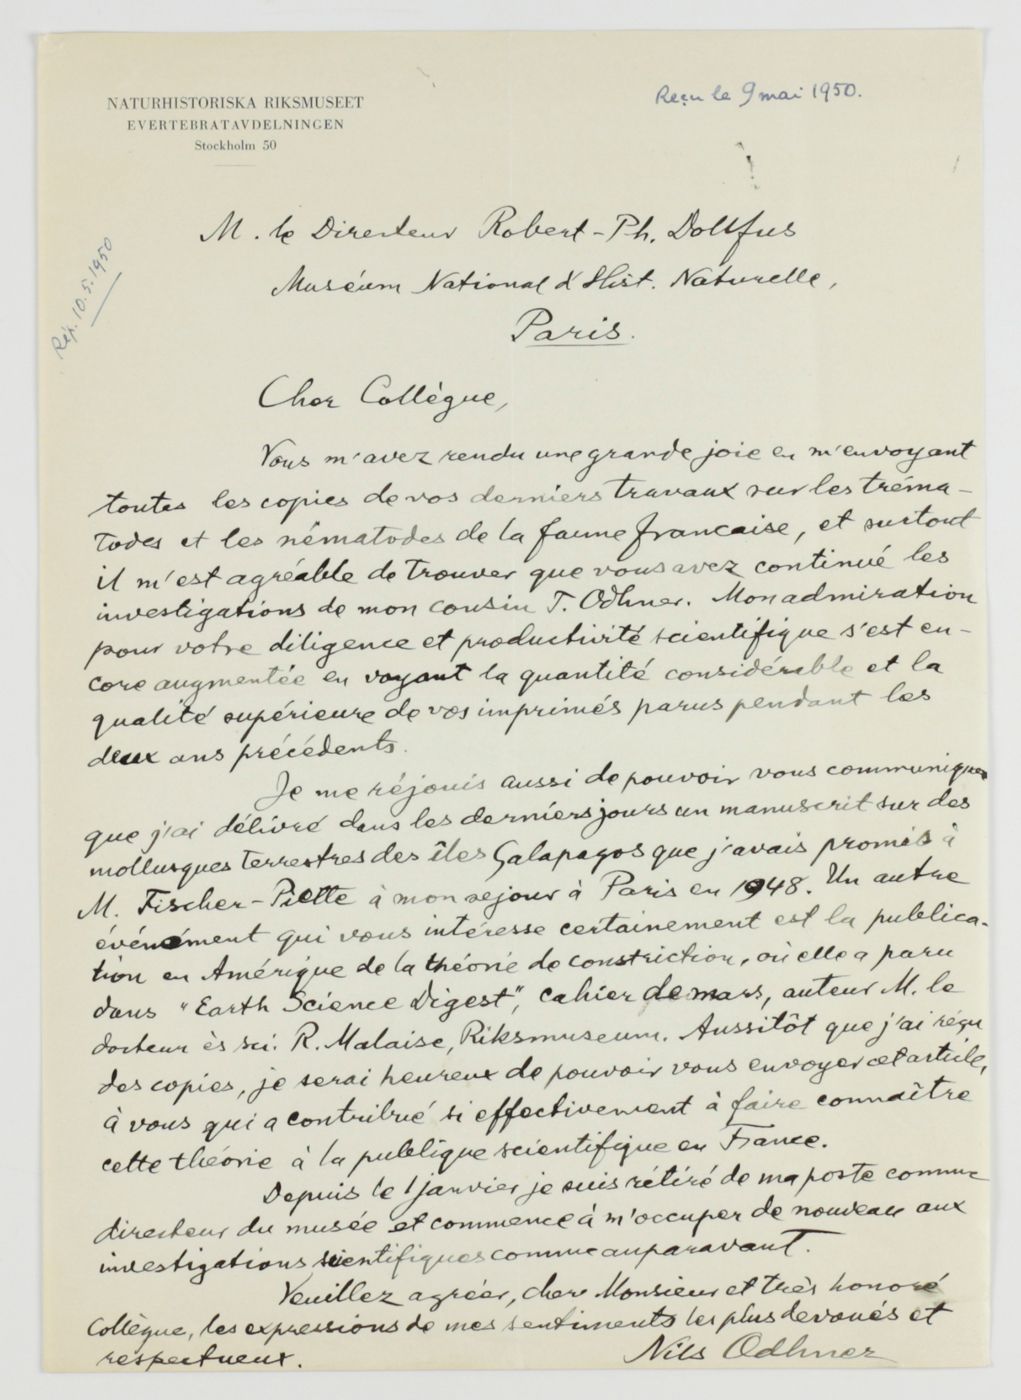 NATURHISTORISKA RIKSMUSEET
EVERTEBRATAVDELNINGEN
Stockholm 50
Reçu le 9 mai 1950.
Rép. 10.5.1950
M. le Directeur Robert-Ph. Dollfus
Muséum National d'Hist. Naturelle,
Paris.
Cher Collègue,
Vous m'avez rendu une grande joie en m'envoyant
toutes les copies de vos derniers travaux sur les tréma-
todes et les nématodes de la faune francaise, et surtout
il m'est agréable de trouver que vous avez continué les
investigations de mon cousin T. Odhner. Mon admiration
pour votre diligence et productivité scientifique s'est en-
core augmentée en voyant la quantité considérable et la
qualité supérieure de vos imprimés parus pendant les
deux ans précédents.
Je me réjouis aussi de pouvoir vous communiquer
que j'ai délivré dans les derniers jours un manuscrit sur des
mollusques terrestres des îles Galapagos que j'avais promis à
M. Fischer-Piette à mon sejour à Paris en 1948. Un autre
événement qui vous intéresse certainement est la publica-
tion en Amérique de la théorie de constriction, où elle a paru
dans "Earth Science Digest", cahier de mars, auteur M. le
docteur ès sci. R. Malaise, Riksmuseum. Aussitôt que j'ai réçu
des copies, je serai heureux de pouvoir vous envoyer cet article,
à vous qui a contribué si effectivement à faire connaître
cette théorie à la publique scientifique en France.
Depuis le 1 janvier je suis rétiré de ma poste comme
directeur du musée et commence à m'occuper de nouveau aux
investigations scientifiques comme auparavant.
Veuillez agréer, cher Monsieur et très honoré
Collègue, les expressions de mes sentiments les plus devoués et
respectueux.
Nils Odhner